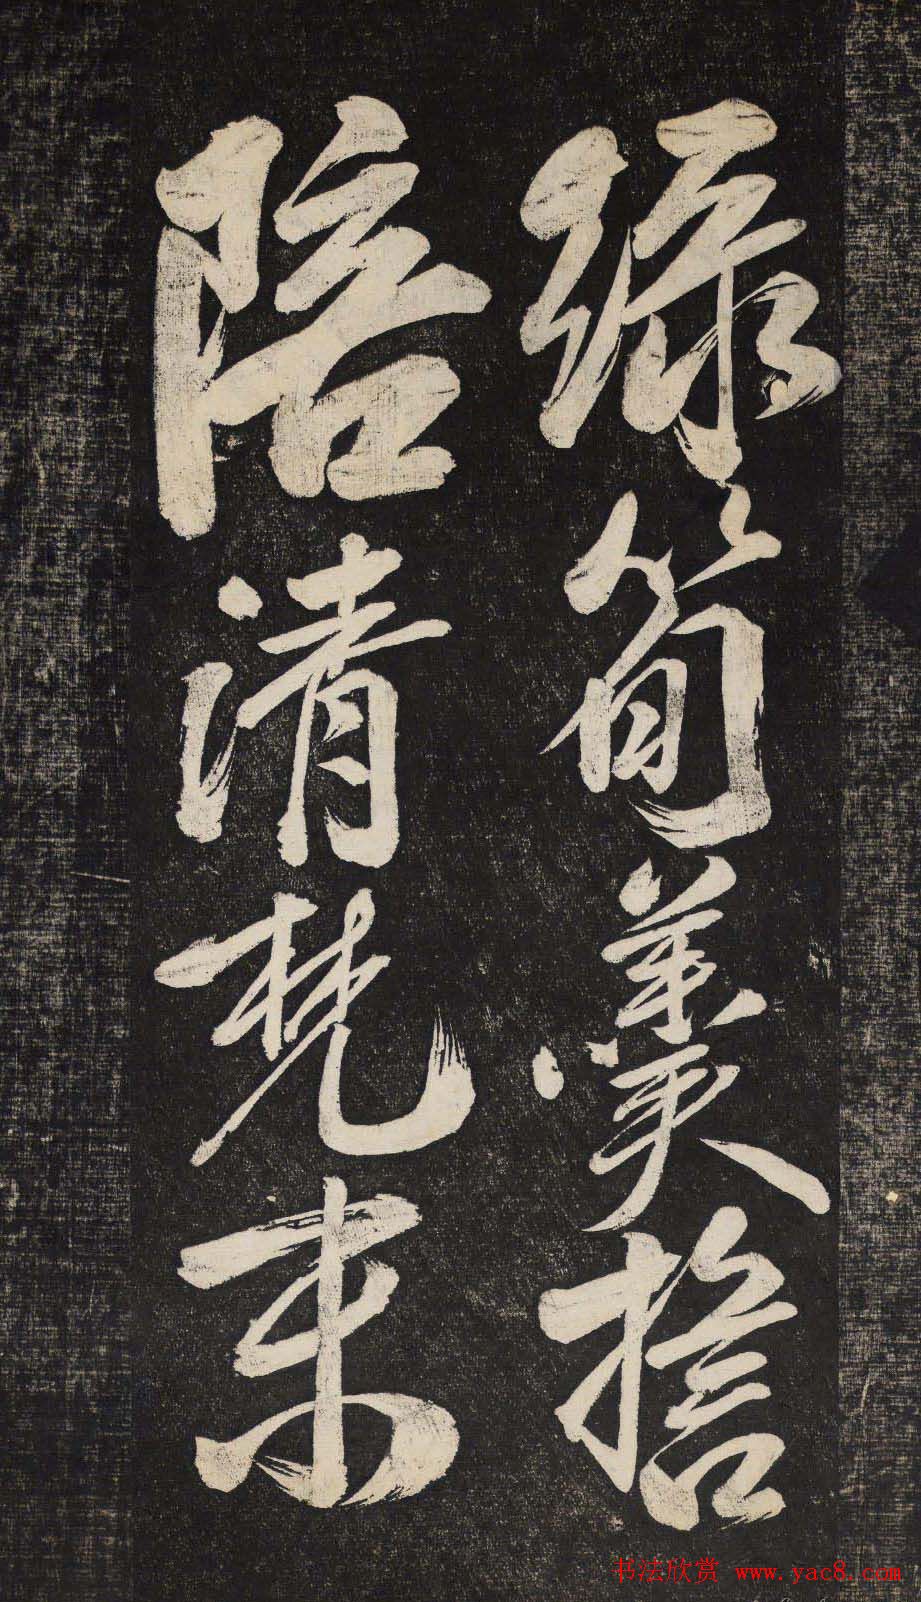 綠筍羹捨
陪清梵未
书法欣赏 www.yac8.com